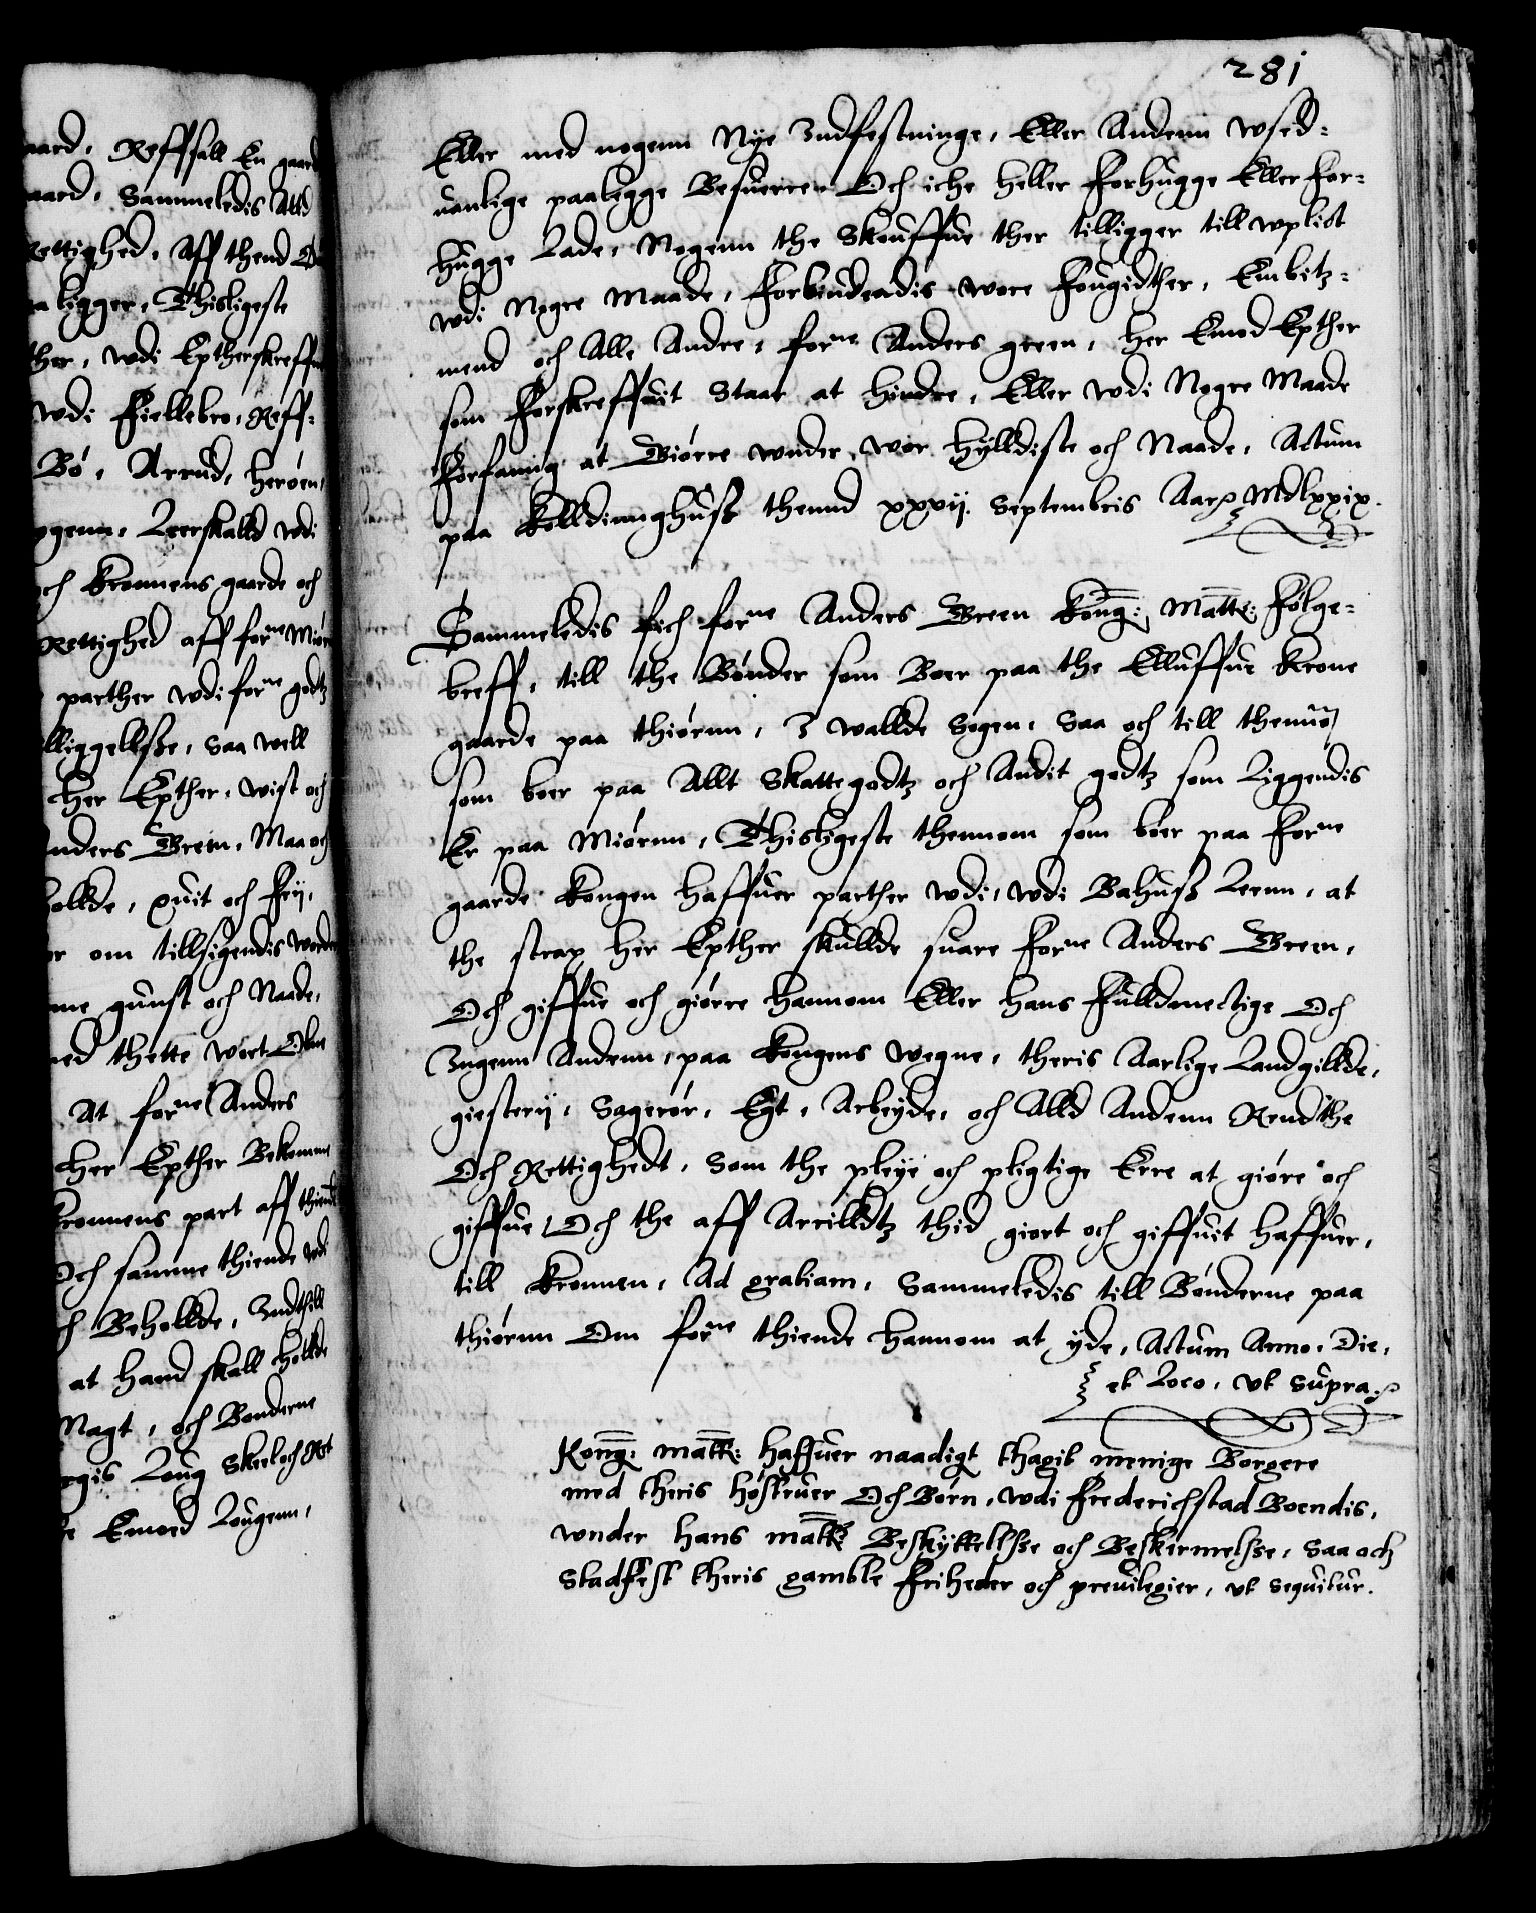 aard, Refffall En gaard
aard, Sammeledis Alld
Rettighed, Aff thend
ligger, Thisligeste
ther, wdi Eptherskreffne
wdi Fiellebro, Reff-
Bö, Arrud, heröen,
ggenn, Leerskalld wdi
och Kronnens gaarde och
Rettighed aff forne Miörn
parther wdi forne godtz
lliggellsze, saa well
her Epther, wist och
Anders Green, Maa och
hollde, quit och frij,
om tillsigendis worde
gunst och Naade,
med thette wort Obne
At forne Anders
her Epther Bekomme
Kronnens part aff thiende
Och samme thiende wdi
och Behollde, Indthill
at hand skall hollde
Magt, och Bonderne
Loug Skeel och Ret
Emoed Lougenn,
281
Eller med nogenn Nye Indfestninge, Eller Andenn wsed-
uanlige paalegge Besuerre, Och iche heller forhugge Eller for-
hugge Lade, Nogenn the Skouffue ther tilligger till wplict
wdi Nogre Maade, Forbindendis wore Fougidther, Embitz-
mend och Alle Andre, forne Anders green, her Emod Epther
som forskreffuit Staar at hindre, Eller wdi Nogre Maade
forfanng at Giörre wnder wor hylldiste och Naade, Actum
paa Kolldinnghusz thennd xxvij Septembris Aar Mdlxxix.
Sammeledis fich forne Anders Green Kong: Matt: Fölge-
breff, till the Bönder som Boer paa the Elluffue Krone
gaarde paa thiörnn, I wallde Sogen, Saa och till thennom
som boer paa Allt Skattegodtz och Andit godtz som Liggendis
Er paa Miörnn, Thisligeste thennom som böer paa forne
gaarde Kongen haffuer parther wdi, wdi Bahusz Leenn, at
the strax her Epther skullde suare forne Anders Green,
Och giffue och giörre hannom Eller hans fulldmectige Och
Ingenn Andenn, paa Kongens wegne, theris Aarlige Landgillde,
giesterij, Sagerör, Egt, Arbeyde, och Alld Andenn Rendthe
Och Rettighedt, Som the pleye och pligtige Erre at giöre och
giffue Och the aff Arrilldtz thid giort och giffuit haffuer,
till Kronnen, Ad gratiam, Sammeledis till Bönderne paa
thiörnn Om forne thiende hannom at yde, Actum Anno, Die,
et Loco, vt Supra.
Kong: matt: haffuer naadigt thagit menige Borgere
med theris höstruer Och Börn, wdi Frederichstad Boendis,
wnder hans matts Beskyttellsze och Beskermelsze, Saa och
Stadfest theris gamble Friheder och preuilegier, vt sequitur.